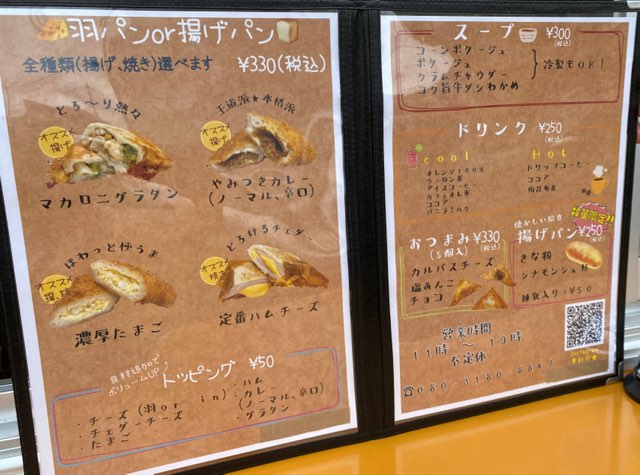 羽パンor揚げパン
全種類(揚げ、焼き)選べます ¥330(税込)
とろ〜り熱々
オススメ
揚げ
マカロニグラタン
王道派★本格派
オススメ
揚げ
やみつきカレー
(ノーマル、辛口)
ほわっと極うま
オススメ
揚、焼
濃厚たまご
とろけるチェダー
オススメ
焼き
定番ハムチーズ
具材追加で
ボリュームUP
トッピング ¥50
・チーズ(羽or in)
・チェダーチーズ
・たまご
・ハム
・カレー
(ノーマル、辛口)
・グラタン
スープ ¥300
(税込)
コーンポタージュ
ポタージュ
クラムチャウダー
コク旨牛ダシわかめ
冷製もOK!
ドリンク ¥250
(税込)
cool
オレンジ100%
ウーロン茶
アイスコーヒー
カフェオレ
ココア
バニラミルク
Hot
ドリップコーヒー
ココア
梅昆布茶
おつまみ ¥330
(5個入) (税込)
カルパスチーズ
塩あんこ
チョコ
数量限定!!
懐かしい給食
揚げパン ¥250
(税込)
きな粉
シナモンシュガー
練乳入り+¥50
営業時間
11時 〜 19時
不定休
Instagram
更新中★
☎080-3180-8847